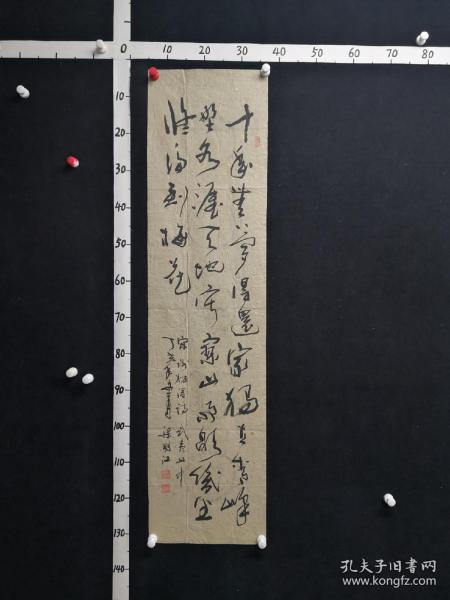 0 10 20 30 40 50 60 70 80
10
20
30
40
50
60
70
80
90
100
110
120
130
140
十年甞夢得還家獨立青峰
野水涯天地寂寥山雨歇幾生
修得到梅花
宋谢枋得詩 武夷山中
丁亥年
孔夫子旧书网
www.kongfz.com